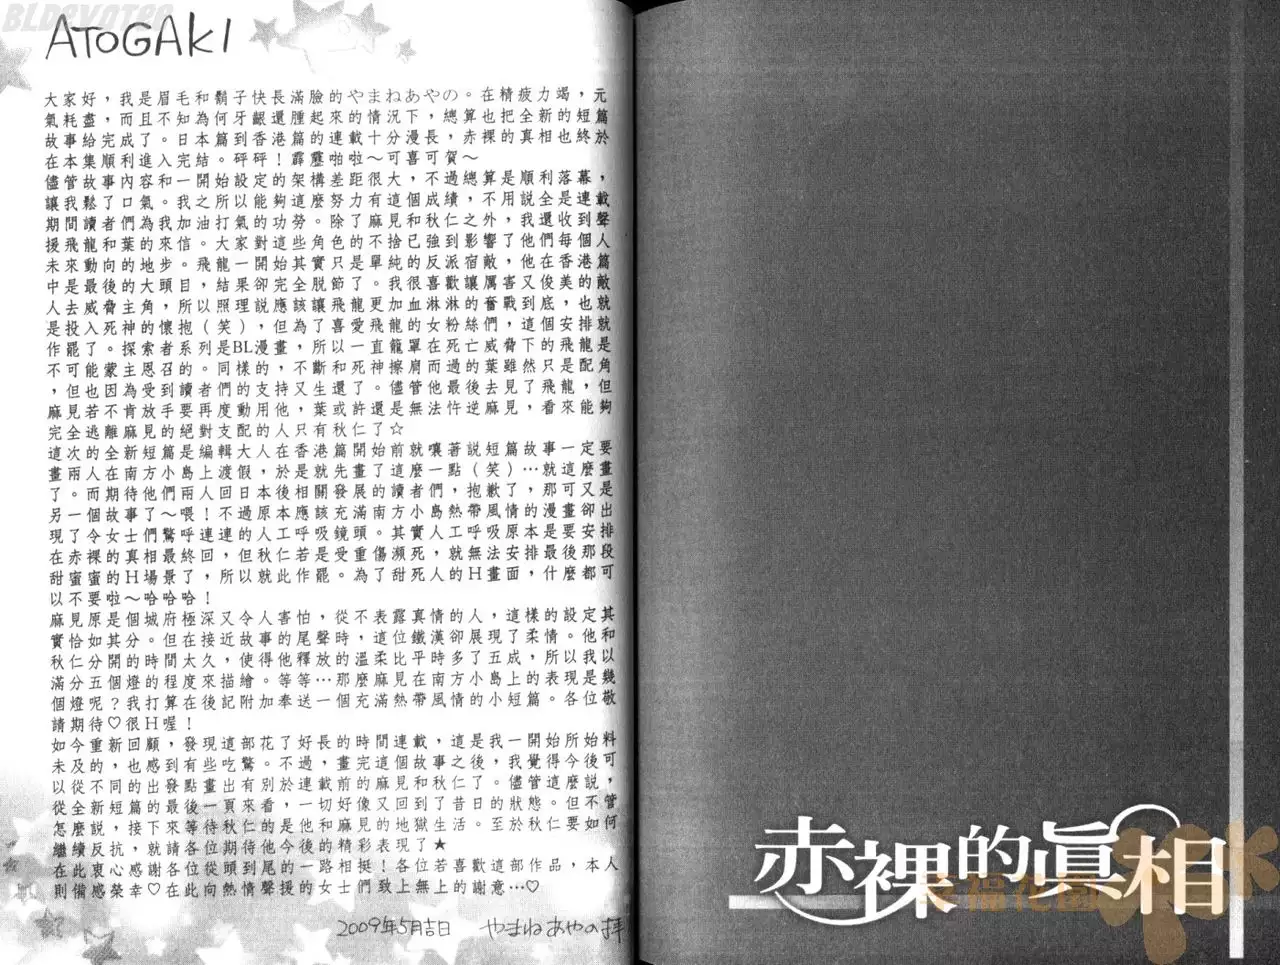 BLDevotee
ATOGAKI
大家好，我是眉毛和鬍子快長滿臉的やまねあやの。在精疲力竭，元
氣耗盡，而且不知為何牙齦還腫起來的情況下，總算也把全新的短篇
故事給完成了。日本篇到香港篇的連載十分漫長，赤裸的真相也終於
在本集順利進入完結。砰砰！霹靂啪啦～可喜可賀～
儘管故事內容和一開始設定的架構差距很大，不過總算是順利落幕，
讓我鬆了口氣。我之所以能夠這麼努力有這個成績，不用說全是連載
期間讀者們為我加油打氣的功勞。除了麻見和秋仁之外，我還收到聲
援飛龍和葉的來信。大家對這些角色的不捨已強到影響了他們每個人
未來動向的地步。飛龍一開始其實只是單純的反派宿敵，他在香港篇
中是最後的大頭目，結果卻完全脫節了。我很喜歡讓厲害又俊美的敵
人去威脅主角，所以照理說應該讓飛龍更加血淋淋的奮戰到底，也就
是投入死神的懷抱（笑），但為了喜愛飛龍的女粉絲們，這個安排就
作罷了。探索者系列是BL漫畫，所以一直籠罩在死亡威脅下的飛龍是
不可能蒙主恩召的。同樣的，不斷和死神擦肩而過的葉雖然只是配角
，但也因為受到讀者們的支持又生還了。儘管他最後去見了飛龍，但
麻見若不肯放手要再度動用他，葉或許還是無法忤逆麻見，看來能夠
完全逃離麻見的絕對支配的人只有秋仁了☆
這次的全新短篇是編輯大人在香港篇開始前就嚷著說短篇故事一定要
畫兩人在南方小島上渡假，於是就先畫了這麼一點（笑）…就這麼畫
了。而期待他們兩人回日本後相關發展的讀者們，抱歉了，那可又是
另一個故事了～喂！不過原本應該充滿南方小島熱帶風情的漫畫卻出
現了令女士們驚呼連連的人工呼吸鏡頭。其實人工呼吸原本是要安排
在赤裸的真相最終回，但秋仁若是受重傷瀕死，就無法安排最後那段
甜蜜蜜的H場景了，所以就此作罷。為了甜死人的H畫面，什麼都可
以不要啦～哈哈哈！
麻見原是個城府極深又令人害怕，從不表露真情的人，這樣的設定其
實恰如其分。但在接近故事的尾聲時，這位鐵漢卻展現了柔情。他和
秋仁分開的時間太久，使得他釋放的溫柔比平時多了五成，所以我以
滿分五個燈的程度來描繪。等等…那麼麻見在南方小島上的表現是幾
個燈呢？我打算在後記附加奉送一個充滿熱帶風情的小短篇。各位敬
請期待♡很H喔！
如今重新回顧，發現這部花了好長的時間連載，這是我一開始所始料
未及的，也感到有些吃驚。不過，畫完這個故事之後，我覺得今後可
以從不同的出發點畫出有別於連載前的麻見和秋仁了。儘管這麼說，
從全新短篇的最後一頁來看，一切好像又回到了昔日的狀態。但不管
怎麼說，接下來等待秋仁的是他和麻見的地獄生活。至於秋仁要如何
繼續反抗，就請各位期待他今後的精彩表現了★
在此衷心感謝各位從頭到尾的一路相挺！各位若喜歡這部作品，本人
則備感榮幸♡在此向熱情聲援的女士們致上無上的謝意…♡
2009年5月吉日　やまねあやの拝
赤裸的真相
幸福花園